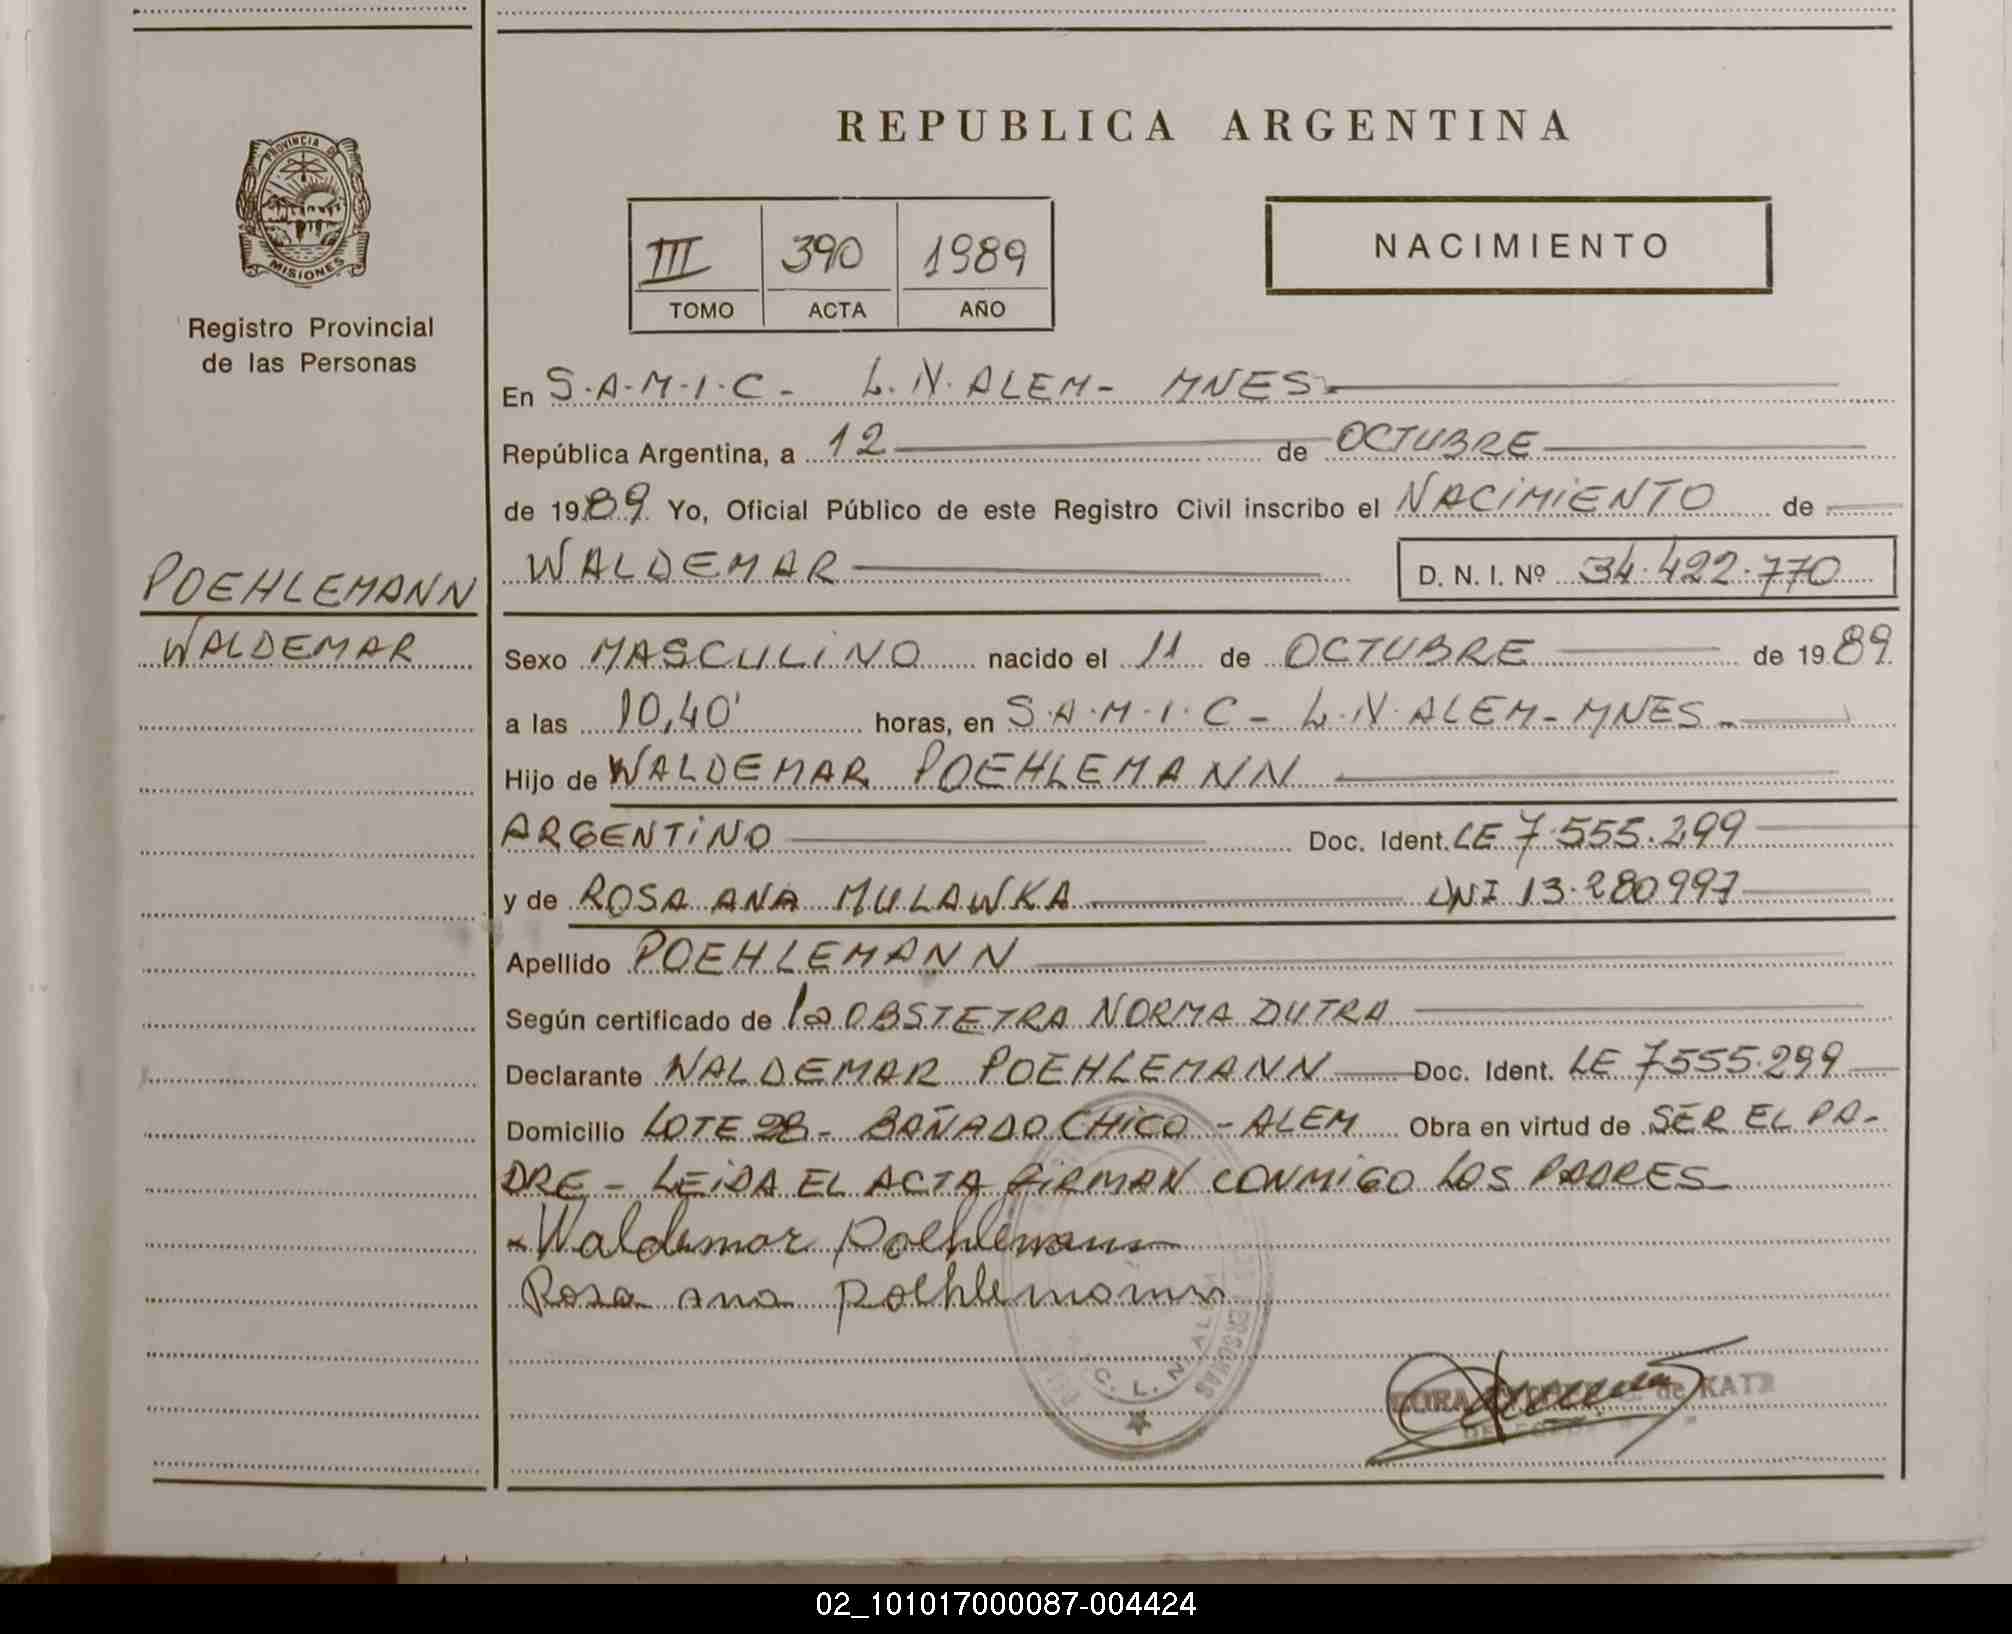 REPUBLICA ARGENTINA
PROVINCIA DE
MISIONES
Registro Provincial
de las Personas
III 390 1989
TOMO ACTA AÑO
NACIMIENTO
En S.A.M.I.C - L.N. ALEM - MNES -
República Argentina, a 12 de OCTUBRE
de 1989 Yo, Oficial Público de este Registro Civil inscribo el NACIMIENTO de
POEHLEMANN
WALDEMAR
WALDEMAR D. N. I. Nº 34.422.770
Sexo MASCULINO nacido el 11 de OCTUBRE de 1989
a las 10,40' horas, en S.A.M.I.C - L.N. ALEM - MNES -
Hijo de WALDEMAR POEHLEMANN
ARGENTINO Doc. Ident. LE 7.555.299
y de ROSA ANA MULAWKA DNI 13.280997
Apellido POEHLEMANN
Según certificado de la OBSTETRA NORMA DUTRA
Declarante WALDEMAR POEHLEMANN Doc. Ident. LE 7555.299
Domicilio LOTE 28 - BAÑADO CHICO - ALEM Obra en virtud de SER EL PA-
DRE - LEIDA EL ACTA FIRMAN CONMIGO LOS PADRES
Waldemar Poehlemann
Rosa ana poehlemann
C. L. N. ALEM
de KATZ
02_101017000087-004424